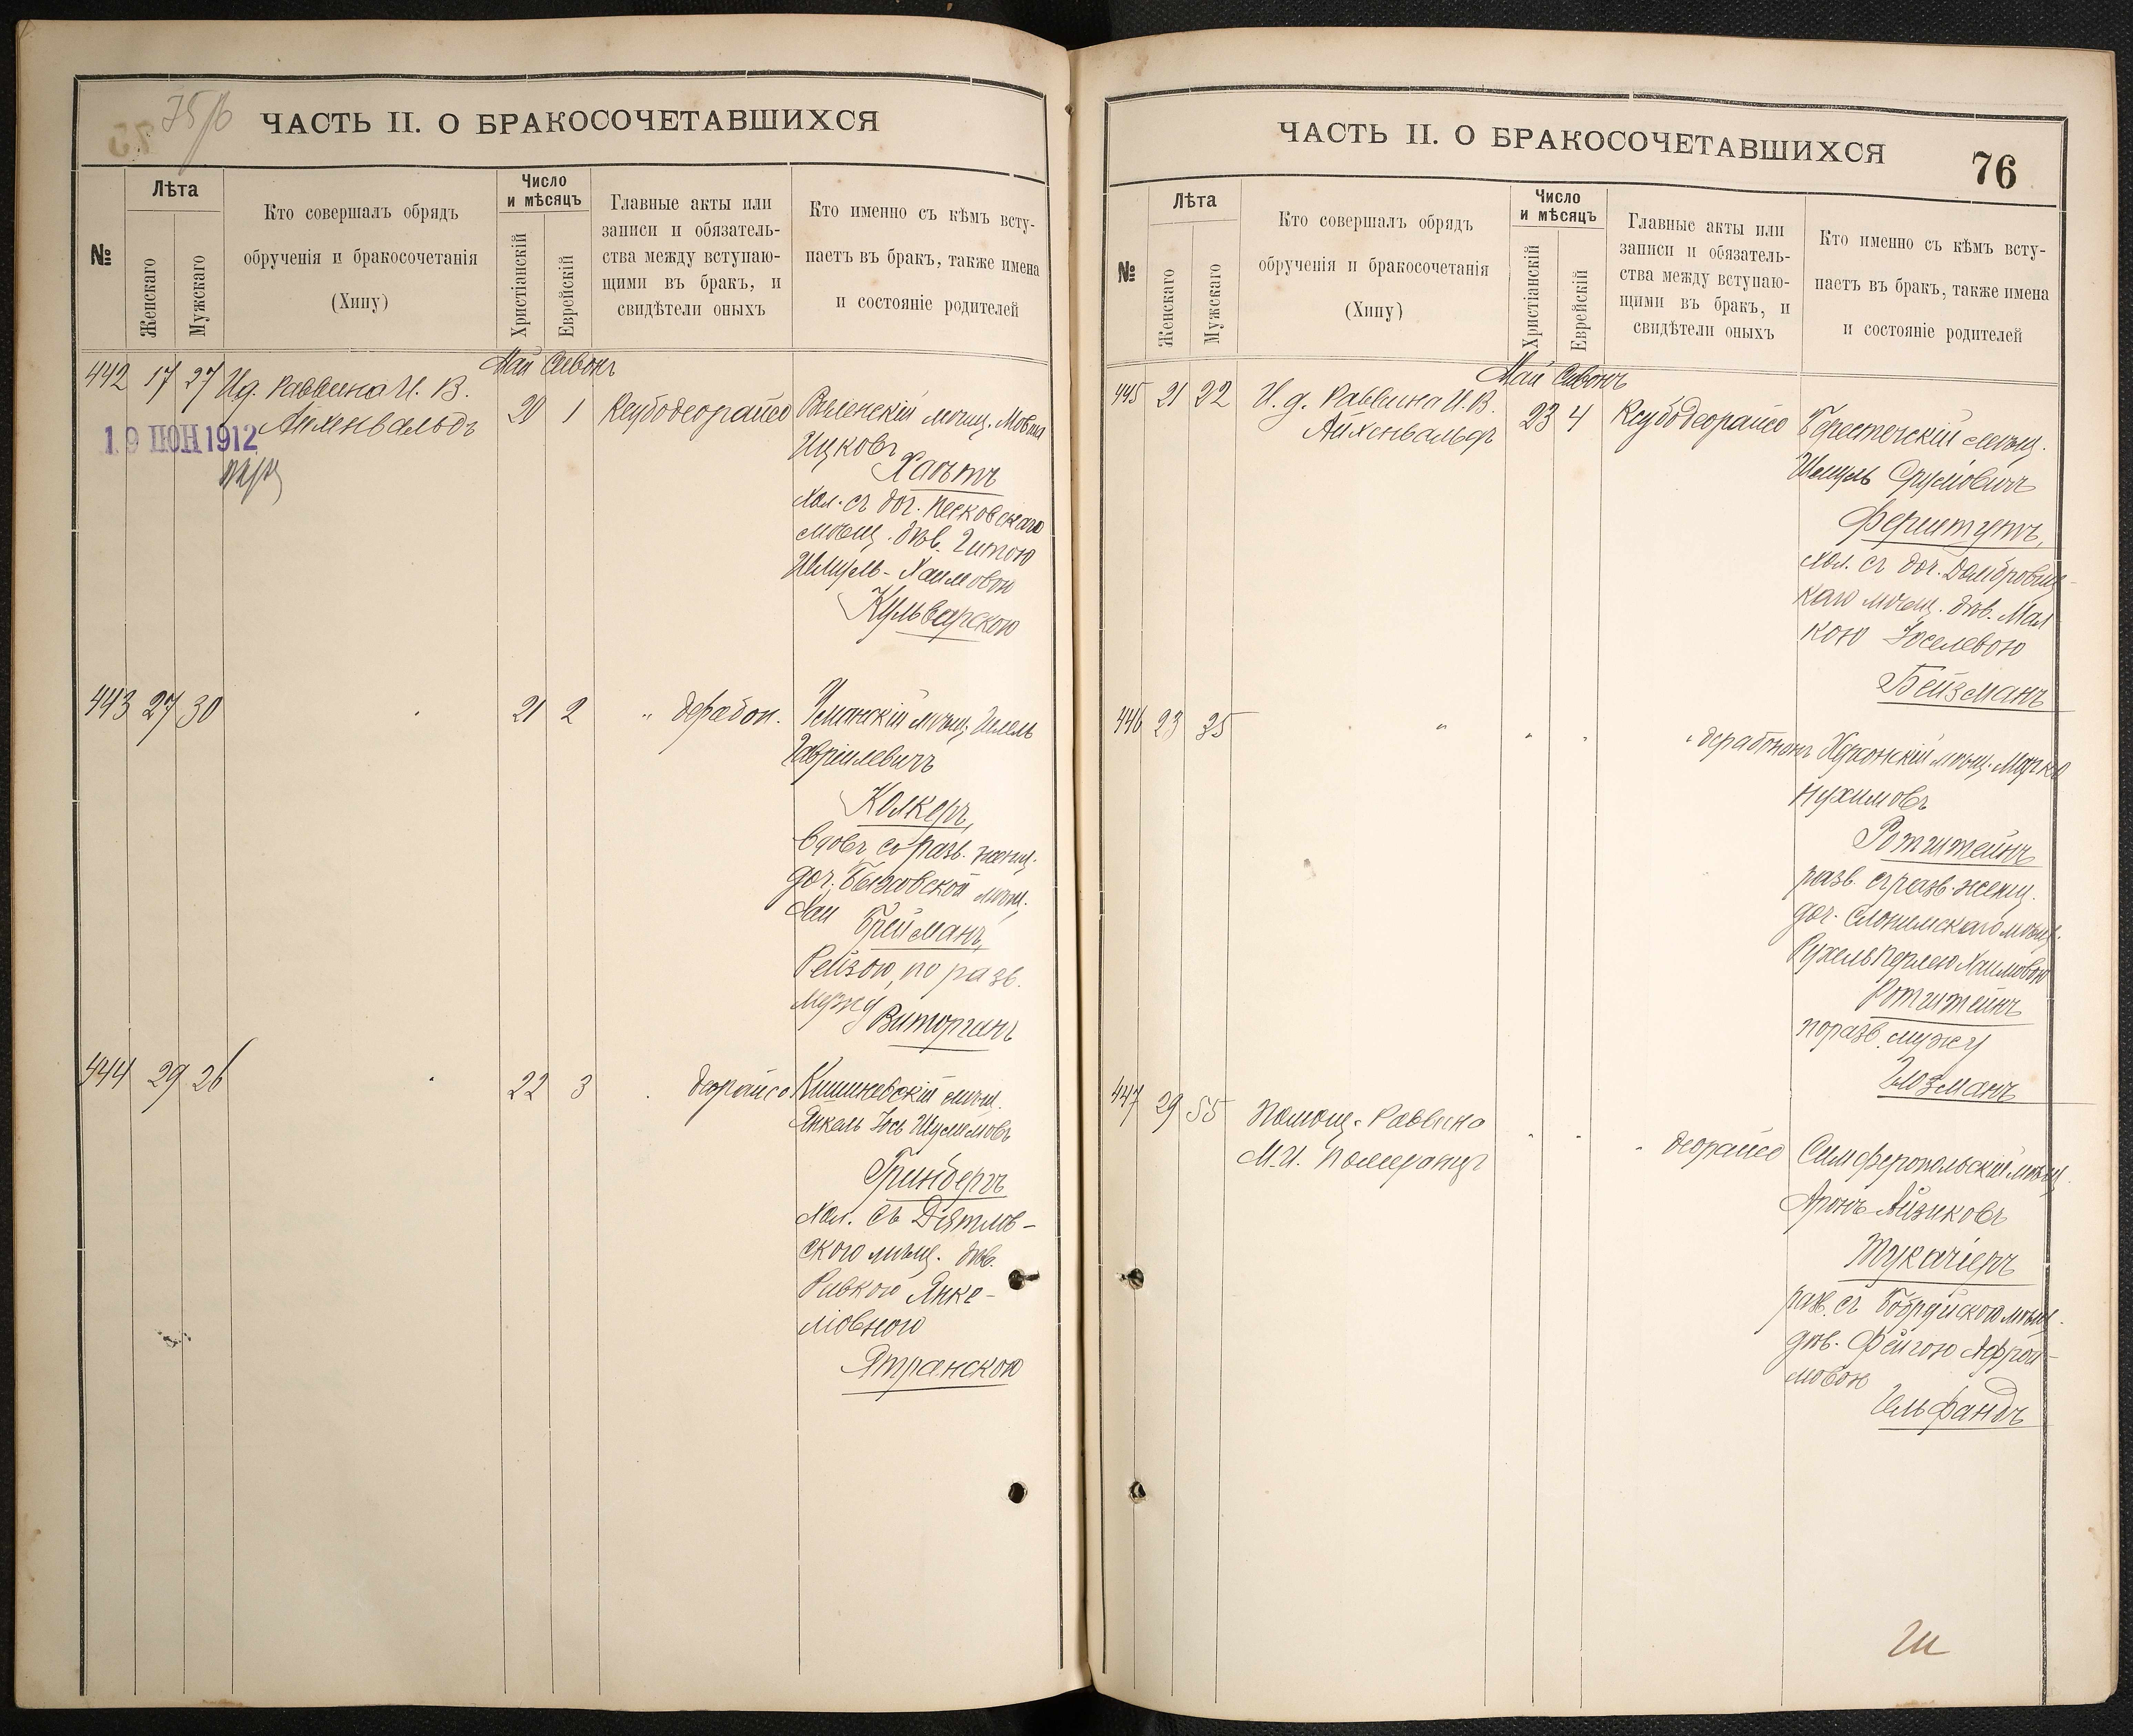 75/б
ЧАСТЬ II. О БРАКОСОЧЕТАВШИХСЯ
№
Лѣта
Женскаго
Мужскаго
Кто совершалъ обрядъ
обрученія и бракосочетанія
(Хипу)
Число
и мѣсяцъ
Христіанскій
Еврейскій
Главные акты или
записи и обязатель-
ства между вступаю-
щими въ бракъ, и
свидѣтели оныхъ
Кто именно съ кѣмъ всту-
паетъ въ бракъ, также имена
и состояніе родителей
Май Сивонъ
442 17 27 И.д. Раввина И. В.
Айхенвальдъ
20 1 Ксубодеорайсо
19 ІЮН 1912
Виленскій мѣщ. Мовша
Ицковъ
Хаютъ
хол. съ доч. Песковскаго
мѣщ. дѣв. Гитою
Шмуль-Хаимовою
Кульварскою
443 27 30
21 2 " дерабон.
Уманскій мѣщ. Гилель
Гавріилевичъ
Колкеръ,
вдовъ, съ разв. женщ.
доч. Быховской мѣщ.
Хаи Брейманъ,
Рейзою, по разв.
мужу Виторганъ
444 29 26
22 3 деорайсо
Кишиневскій мѣщ.
Янкель Іось Шулимовъ
Гринбергъ
хол. съ Дятлов-
ского мѣщ. дѣв.
Ривкою Янке-
ліовною
Ятранскою
ЧАСТЬ II. О БРАКОСОЧЕТАВШИХСЯ
76
№
Лѣта
Женскаго
Мужскаго
Кто совершалъ обрядъ
обрученія и бракосочетанія
(Хипу)
Число
и мѣсяцъ
Христіанскій
Еврейскій
Главные акты или
записи и обязатель-
ства между вступаю-
щими въ бракъ, и
свидѣтели оныхъ
Кто именно съ кѣмъ всту-
паетъ въ бракъ, также имена
и состояніе родителей
Май Сивонъ
445 21 22 И. д. Раввина И.В.
Айхенвальдъ
23 4 Ксубодеорайсо
Берестечскій мѣщ.
Шмуль Сруліовичъ
Ферштутъ,
хол. съ доч. Домбровиц-
каго мѣщ. дѣв. Мал
кою Іоселевою
Бейзманъ
446 23 35 " " "
" дерабононъ
Херсонскій мѣщ. Мортко
Нухимовъ
Ротштейнъ
разв. съ разв. женщ.
доч. Слонимскаго мѣщ.
Рухель Перлею Хаимовою
Ротштейнъ
по разв. мужу
Глозманъ
447 29 55 Помощ. Раввина
М.И. Померанцъ
" " " деорайсо
Симферопольскій мѣщ.
Аронъ Айзиковъ
Тукачіеръ
разв. съ Бобруйскою мѣщ.
дѣв. Фейгою Афрои-
мовою
Гельфандъ